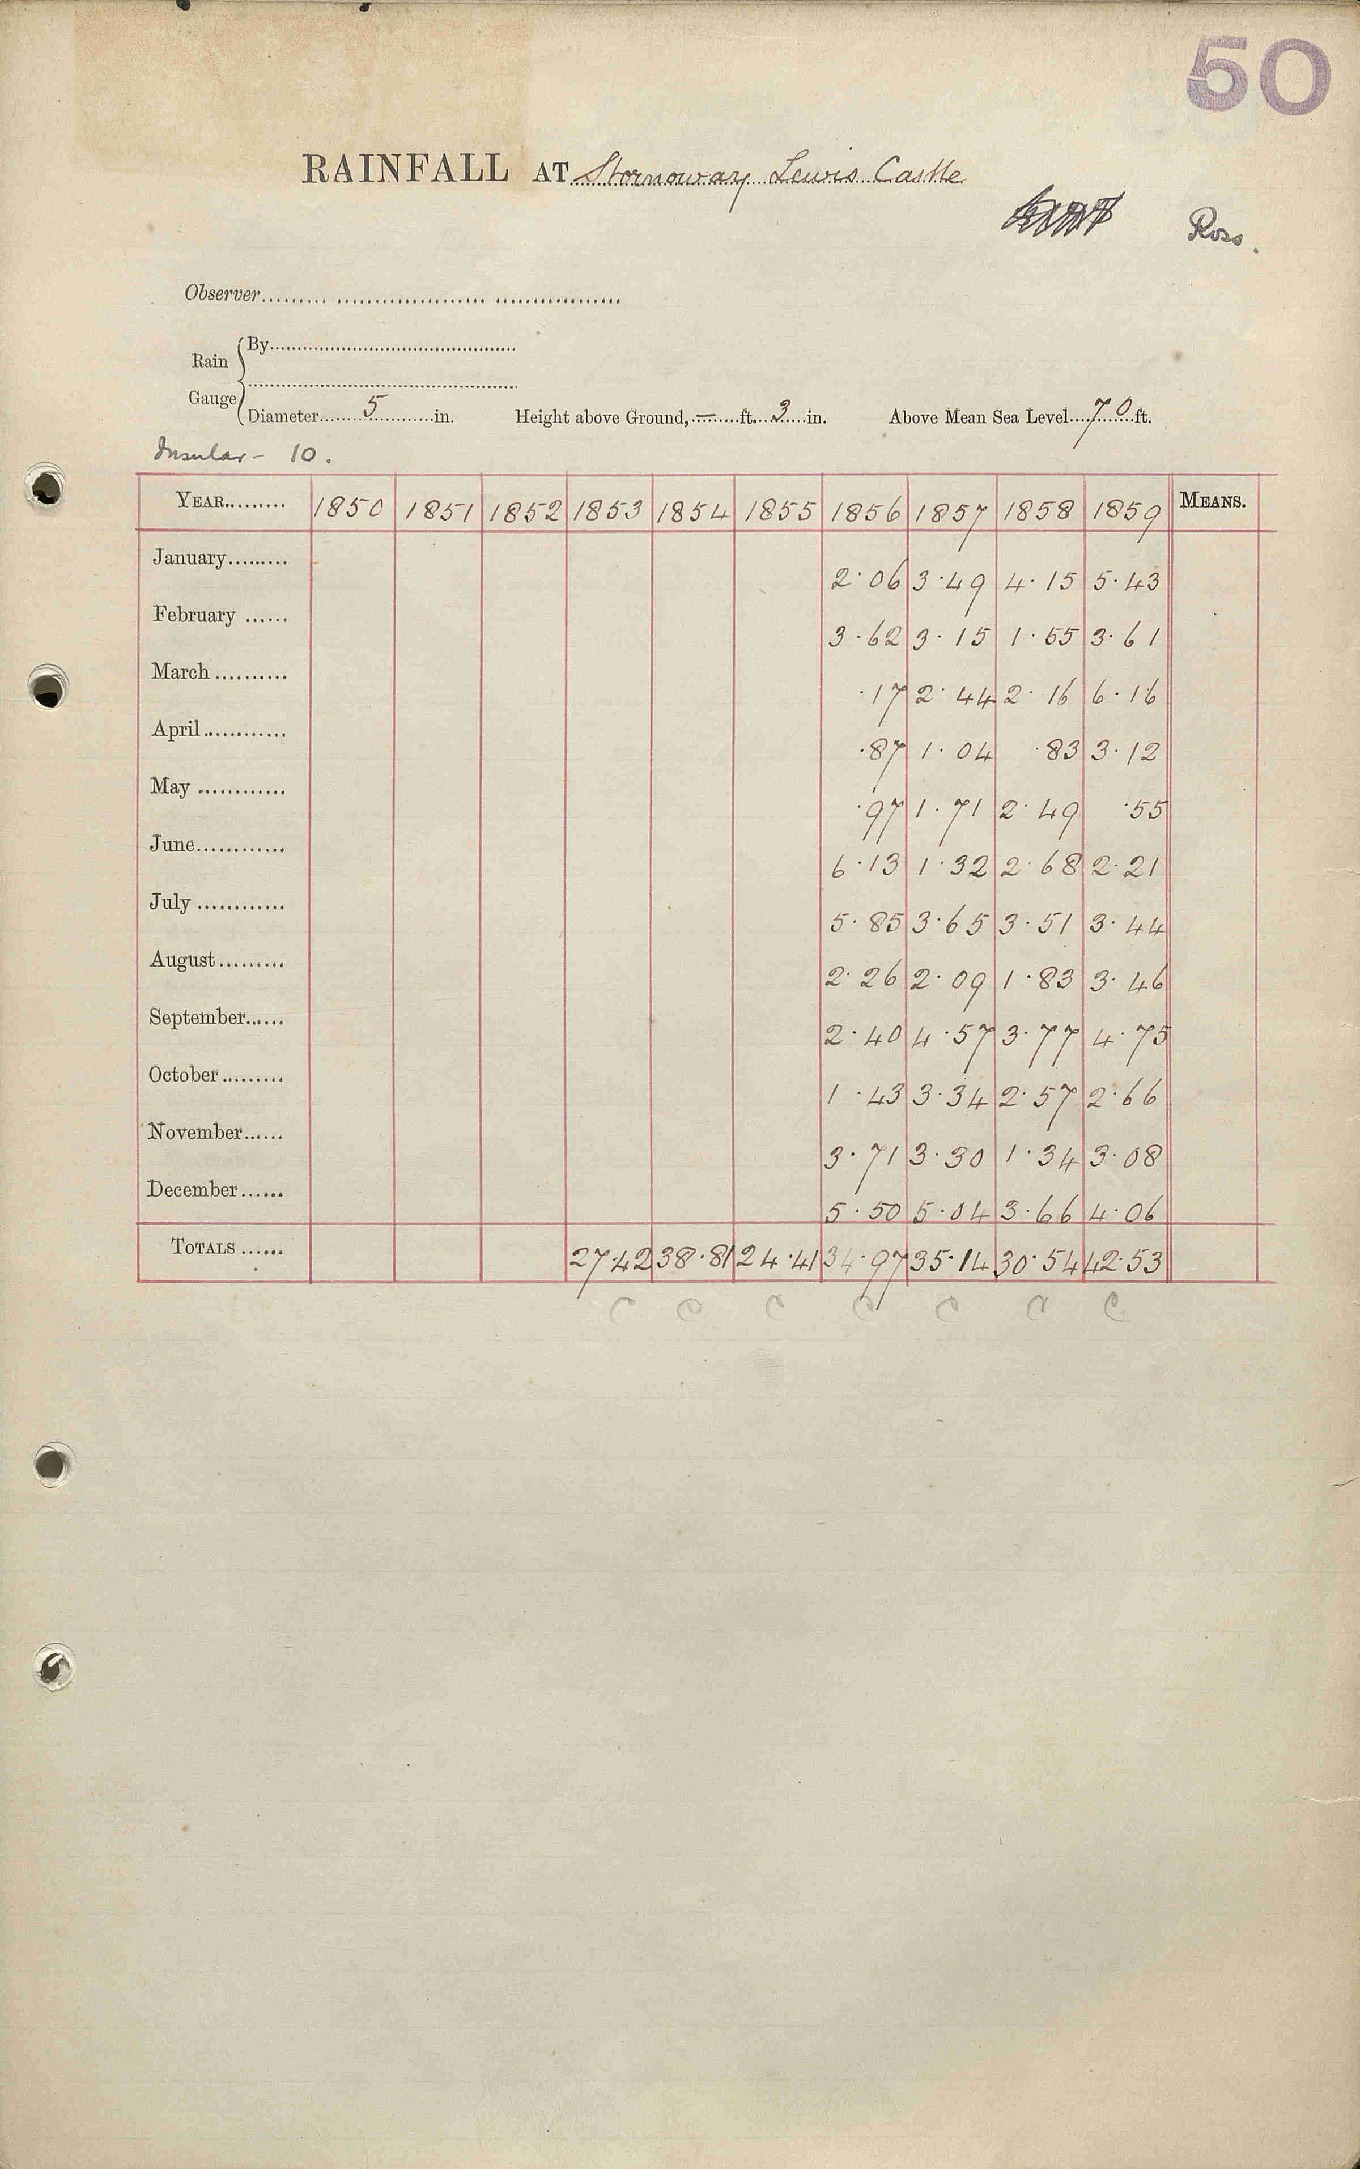 50
RAINFALL AT Stornoway Lewis Castle
Ross.
Observer
Rain Gauge { By
Diameter 5 in. Height above Ground, — ft. 3 in. Above Mean Sea Level 70 ft.
Insular - 10.
YEAR 1850 1851 1852 1853 1854 1855 1856 1857 1858 1859 MEANS.
January 2.06 3.49 4.15 5.43
February 3.62 3.15 1.55 3.61
March .17 2.44 2.16 6.16
April .87 1.04 .83 3.12
May .97 1.71 2.49 .55
June 6.13 1.32 2.68 2.21
July 5.85 3.65 3.51 3.44
August 2.26 2.09 1.83 3.46
September 2.40 4.57 3.77 4.75
October 1.43 3.34 2.57 2.66
November 3.71 3.30 1.34 3.08
December 5.50 5.04 3.66 4.06
TOTALS 27.42 38.81 24.41 34.97 35.14 30.54 42.53
C C C C C C C